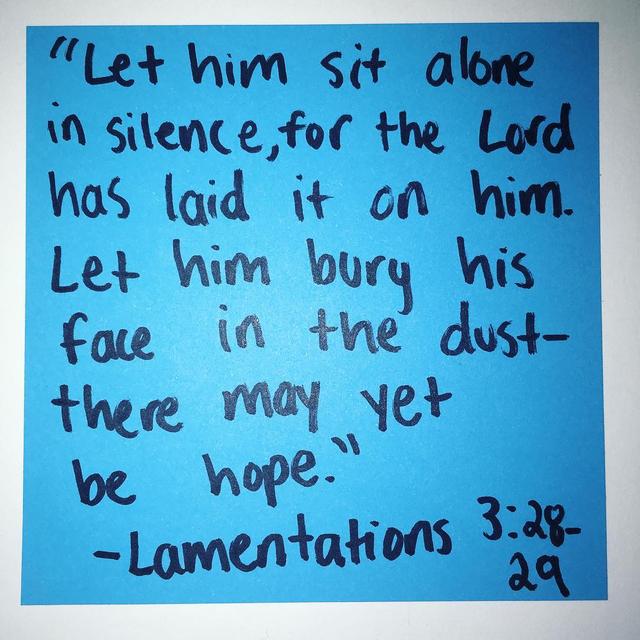 "Let him sit alone
in silence, for the Lord
has laid it on him.
Let him bury his
face in the dust-
there may yet
be hope."
-Lamentations 3:28-
29